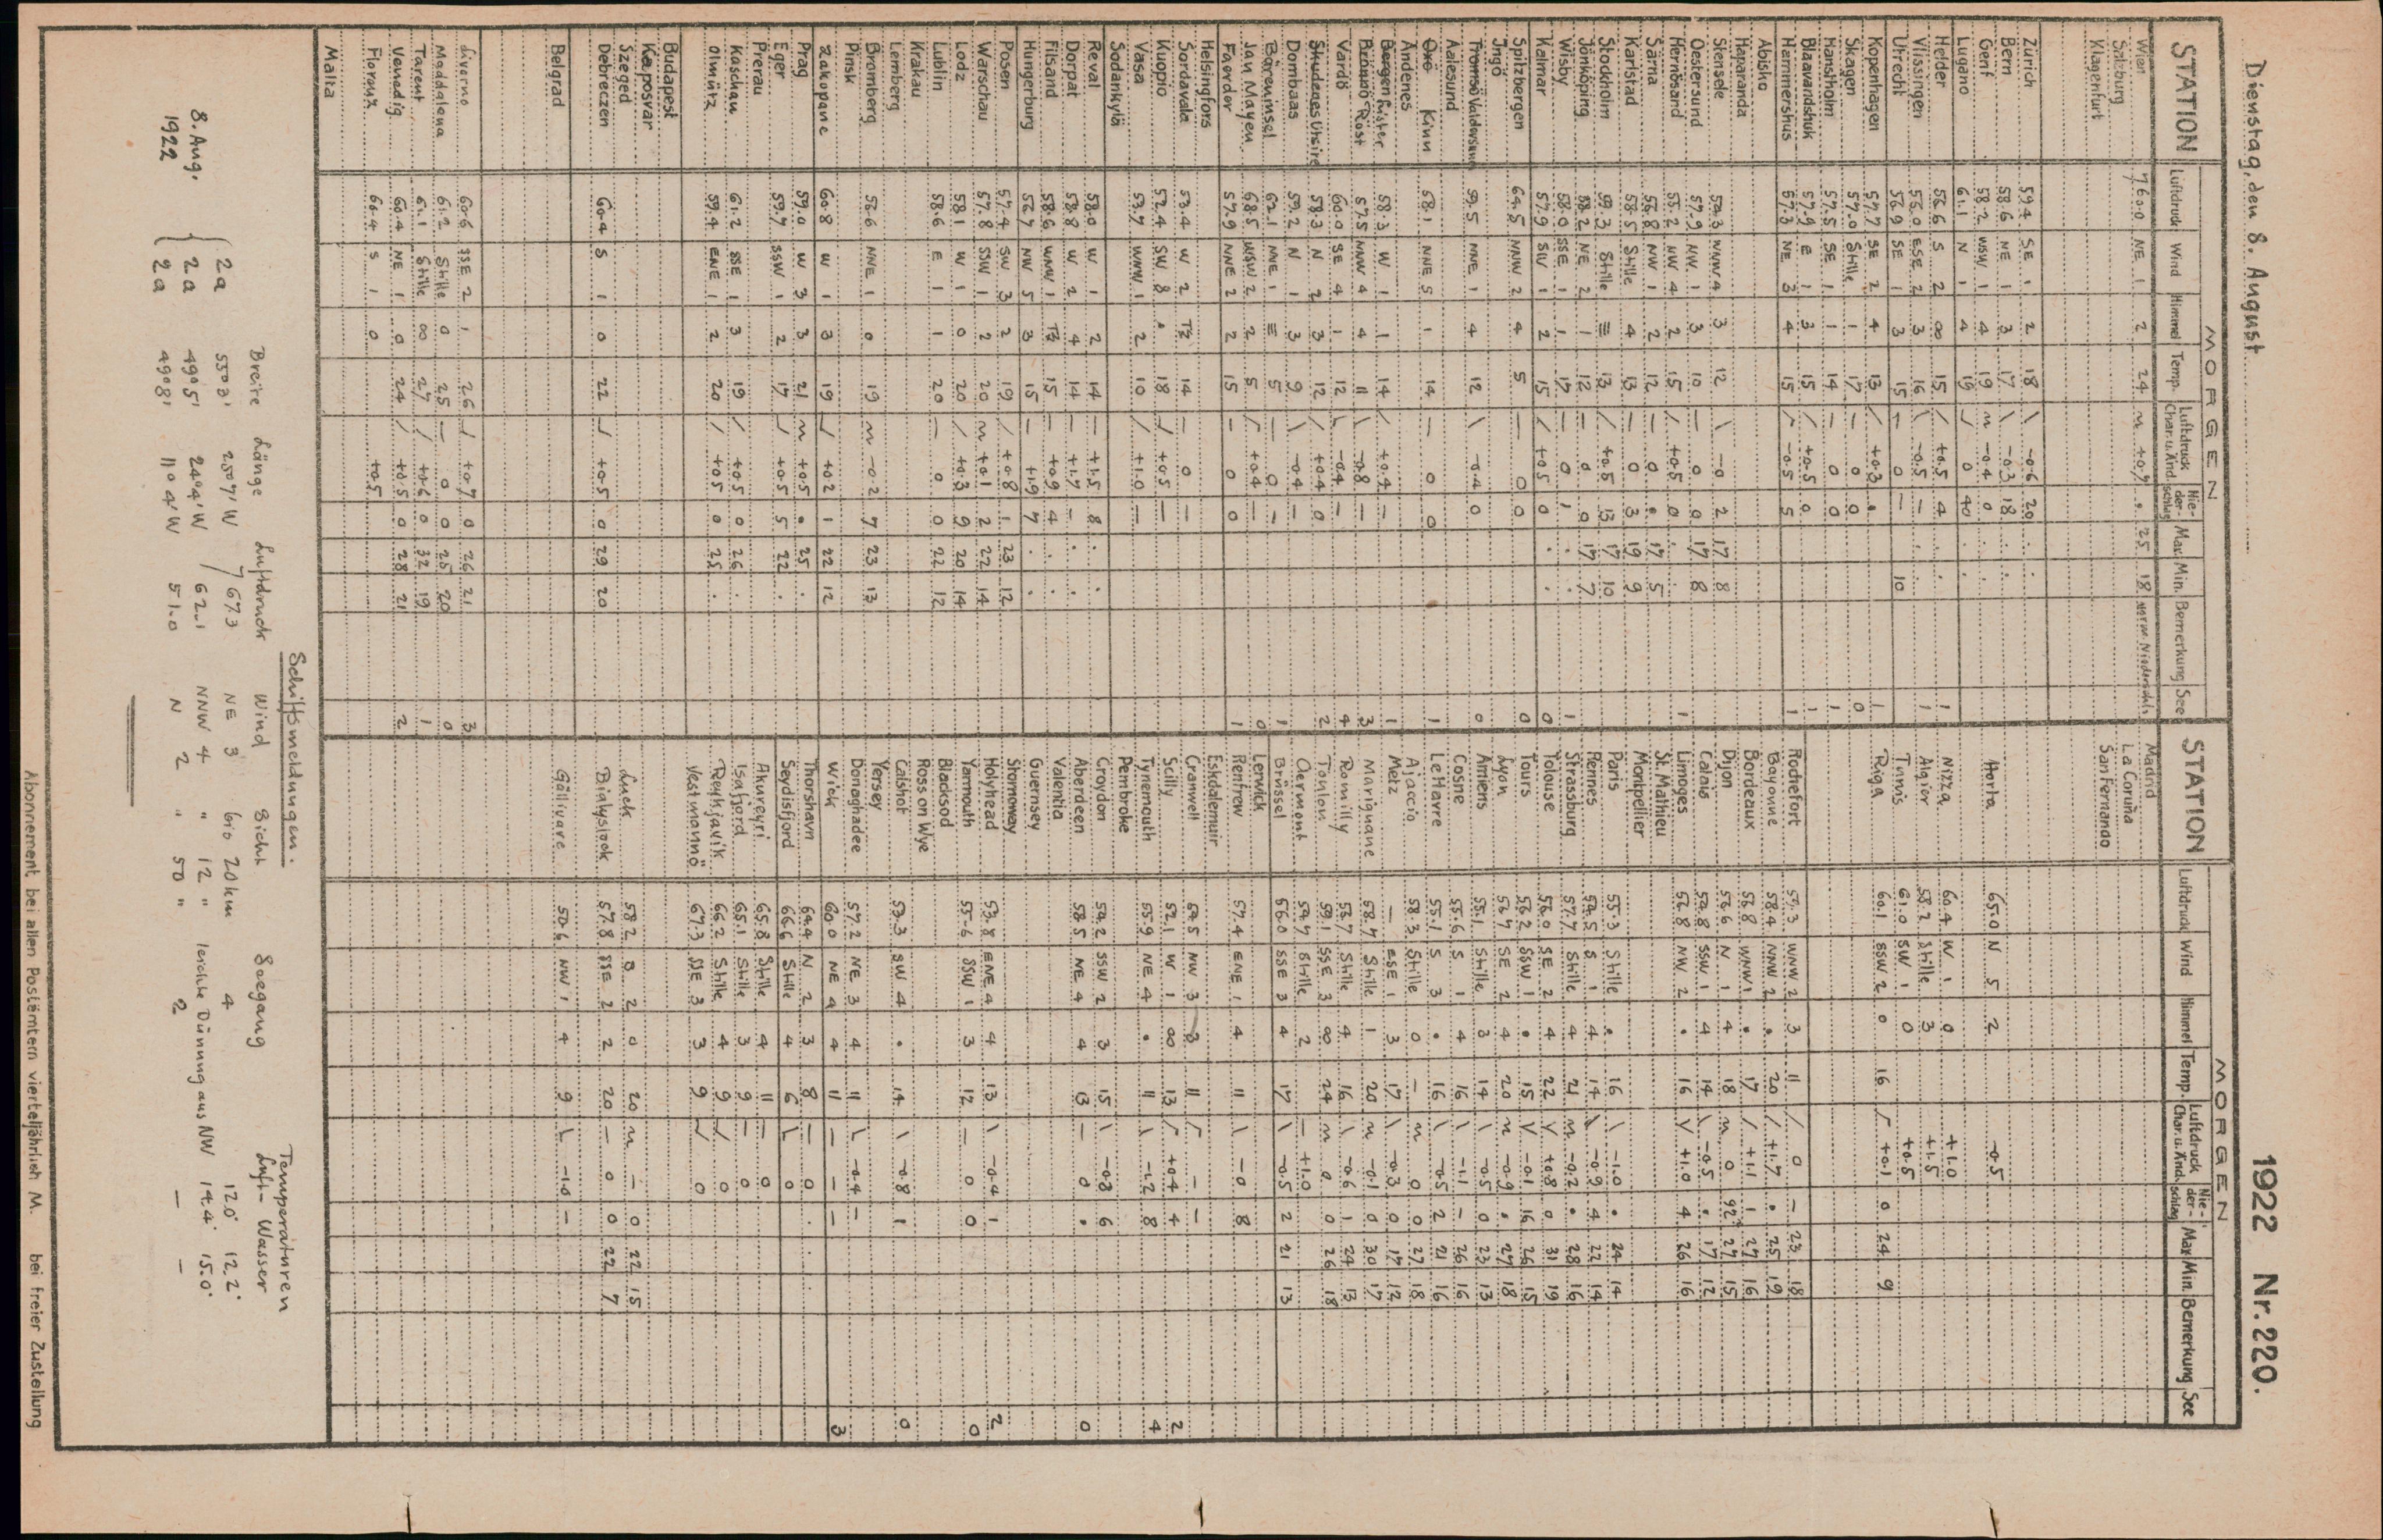 Dienstag, den 8. August 1922 Nr. 220.
MORGEN
STATION Luftdruck Wind Himmel Temp. Luftdruck Char. u. Änd. Nie-der-schlag Max. Min. Bemerkung See
Wien 760.0 NE 1 2 24 +0.7 . 25 18
Salzburg
Klagenfurt
Zürich 59.4 SE 1 2 18 \ -0.6 20
Bern 58.6 NE 1 3 17 \ -0.3 18
Genf 58.2 WSW 1 4 19 -0.4 0
Lugano 61.1 N 1 4 19 0 40
Helder 56.6 S 2 ∞ 15 / +0.5 4 1
Vlissingen 56.0 ESE 2 3 16 \ -0.5 — 1
Utrecht 56.9 SE 1 3 15 0 — 10
Kopenhagen 57.7 SE 2 4 13 +0.3 . 1
Skagen 57.0 Stille 1 17 — 0 0 0
Hanstholm 57.5 SE 1 1 14 — 0 0 1
Blaavandshuk 57.9 E 1 3 15 / +0.5 0 1
Hammershus 57.3 NE 3 4 15 -0.5 5 1
Abisko
Haparanda
Stensele 53.3 NNW 4 3 12 \ -0 2 17 8
Oestersund 57.9 NW 1 3 10 — 0 0 17 8
Hernösand 55.2 NW 4 2 15 / +0.5 0 1
Särna 56.8 NW 1 2 12 — 0 . 17 5
Karlstad 58.5 Stille 4 13 — 0 3 19 9
Stockholm 59.3 Stille ≡ 13 / +0.5 13 17 10
Jönköping 58.2 NE 2 1 12 — 0 0 17 7
Wisby 58.0 SSE 1 1 17 — 0 1 . . 1
Kalmar 57.9 SW 1 2 15 / +0.5 0 . . 0
Spitzbergen 64.5 NNW 2 4 5 — 0 0 0
Ingö
Tromsö 59.5 NNE 1 4 12 \ -0.4 0 0
Aalesund
Oxö Kinn 58.1 NNE 5 1 14 — 0 0 1
Andenes
Bergen Lister 58.3 W 1 1 14 / +0.4 — 1
Brönnö Röst 57.5 NNW 4 4 11 \ -0.8 — 3
Vardö 60.0 SE 4 1 12 -0.4 — 4
Skudenes Utsire 58.3 N 2 3 12 / +0.4 0 2
Dombaas 59.2 N 1 3 9 \ -0.4 —
Bäreninsel 62.1 NNE 1 ≡ 5 — 0 — 1
Jan Mayen 68.5 WSW 2 2 5 +0.4 — 0
Faerder 57.9 NNE 2 2 15 — 0 0 1
Helsingfors
Sordavala 53.4 W 2 14 — 0 —
Kuopio 52.4 SW 8 . 18 +0.5 —
Vasa 53.7 WNW 1 2 10 / +1.0 —
Sodankylä
Reval 58.0 W 1 2 14 — +1.5 8 . .
Dorpat 58.8 W 2 4 14 — +1.7 — . .
Filsand 58.6 WNW 1 15 — +0.9 4 . .
Hungerburg 56.7 NW 5 3 15 — +1.9 7 . .
Posen 57.4 SW 3 2 19 / +0.8 1 23 12
Warschau 57.8 SSW 1 2 20 +0.1 2 22 14
Lodz 58.1 W 1 0 20 / +0.3 9 20 14
Lublin 58.6 E 1 1 20 — 0 0 22 12
Krakau
Lemberg
Bromberg 56.6 NNE 1 0 19 -0.2 7 23 13
Pinsk
Zakopane 60.8 W 1 3 19 +0.2 1 22 12
Prag 59.0 W 3 3 21 +0.5 . 25 .
Eger 59.7 SSW 1 2 17 +0.5 5 22 .
Prerau
Kaschau 61.2 SSE 1 3 19 / +0.5 0 26
Olmütz 59.4 ENE 1 2 20 / +0.5 0 25 .
Budapest
Kaposvár
Szeged
Debreczen 60.4 S 1 0 22 +0.5 0 29 20
Belgrad
Livorno 60.6 SSE 2 1 26 +0.7 0 26 21 3
Maddalena 61.2 Stille 0 25 — 0 0 25 20 0
Tarent 61.1 Stille ∞ 27 / +0.6 0 32 19 1
Venedig 60.4 NE 1 0 24 / +0.5 0 28 21 2
Florenz 60.4 S 1 0 +0.5
Malta
MORGEN
STATION Luftdruck Wind Himmel Temp. Luftdruck Char. u. Änd. Nie-der-schlag Max. Min. Bemerkung See
Madrid
La Coruña
San Fernando
Horta 65.0 N 5 2 -0.5
Nizza 60.4 W 1 0 +1.0
Algier 58.2 Stille 3 +1.5
Tunis 61.0 SW 1 0 +0.5
Riga 60.1 SSW 2 0 16 +0.1 0 24 9
Rochefort 59.3 WNW 2 3 11 / 0 — 23 18
Bayonne 58.4 NNW 2 . 20 / +1.7 . 25 19
Bordeaux 56.8 WNW 1 . 17 / +1.1 1 27 16
Dijon 56.6 N 1 4 18 0 92 27 15
Calais 54.8 SSW 1 4 14 \ -0.5 . 17 12
Limoges 56.8 NW 2 . 16 V +1.0 4 26 16
St. Mathieu
Montpellier
Paris 55.3 Stille . 16 \ -1.0 . 24 14
Rennes 54.5 S 1 4 14 \ -0.9 4 22 14
Strassburg 57.7 Stille 4 21 -0.2 . 28 16
Tolouse 56.0 SE 2 4 22 V +0.8 0 31 19
Tours 56.2 SSW 1 . 15 V -0.1 16 26 15
Lyon 56.7 SE 2 4 20 -0.9 . 27 18
Amiens 55.1 Stille 3 14 \ -0.5 0 23 13
Cosne 55.6 S 1 4 16 \ -1.1 — 26 16
Le Havre 55.1 S 3 . 16 \ -0.5 2 21 16
Ajaccio 58.3 Stille 0 — 0 0 27 18
Metz — ESE 1 3 17 \ -0.3 0 17 12
Marignane 58.7 Stille 1 20 -0.1 0 30 17
Romilly 56.7 Stille 4 16 \ -0.6 1 24 13
Toulon 59.1 SSE 3 ∞ 24 0 0 26 18
Clermont 59.7 Stille 2 — +1.0
Brüssel 56.0 SSE 3 4 17 \ -0.5 2 21 13
Lerwick
Renfrew 57.4 ENE 1 4 11 \ -0 8
Eskdalemuir
Cranwell 54.5 NW 3 8 11 — —
Scilly 52.1 W 1 ∞ 13 +0.4 4 2
Tynemouth 55.9 NE 4 . 11 \ -1.2 8 4
Pembroke
Croydon 54.2 SSW 2 3 15 \ -0.8 6
Aberdeen 58.5 NE 4 4 13 — 0 . 0
Valentia
Guernsey
Stornoway
Holyhead 53.8 ENE 4 4 13 \ -0.4 1 2
Yarmouth 55.6 SSW 1 3 12 — 0 0 0
Blacksod
Ross on Wye
Calshot 53.3 SW 4 . 14 \ -0.8 1 0
Yersey
Donaghadee 57.2 NE 3 4 11 -0.4 —
Wick 60.0 NE 4 4 11 — — — 3
Thorshavn 64.4 N 2 3 8 — 0 .
Seydisfjord 66.6 Stille 4 6 0
Akureyri 65.8 Stille 4 11 — 0
Isafjord 65.1 Stille 3 9 — 0
Reykjavik 66.2 Stille 4 9 0
Vestmannö 67.3 SSE 3 3 9 0
Luck 58.2 S 2 0 20 — 0 22 15
Bialystock 57.8 SSE 2 2 20 — 0 0 22 7
Gällivare 50.6 NW 1 4 9 -1.0 —
Schiffsmeldungen.
Breite Länge Luftdruck Wind Sicht Seegang Temperaturen Luft- Wasser
8. Aug. 1922
2a 55°3' 25°7' W 767.3 NE 3 bis 20 km 4 12.0° 12.2°
2a 49°5' 24°4' W 62.1 NNW 4 " 12 " leichte Dünung aus NW 14.4° 15.0°
2a 49°8' 11°4' W 51.0 N 2 " 50 " 2 — —
Abonnement bei allen Postämtern vierteljährlich M. bei freier Zustellung